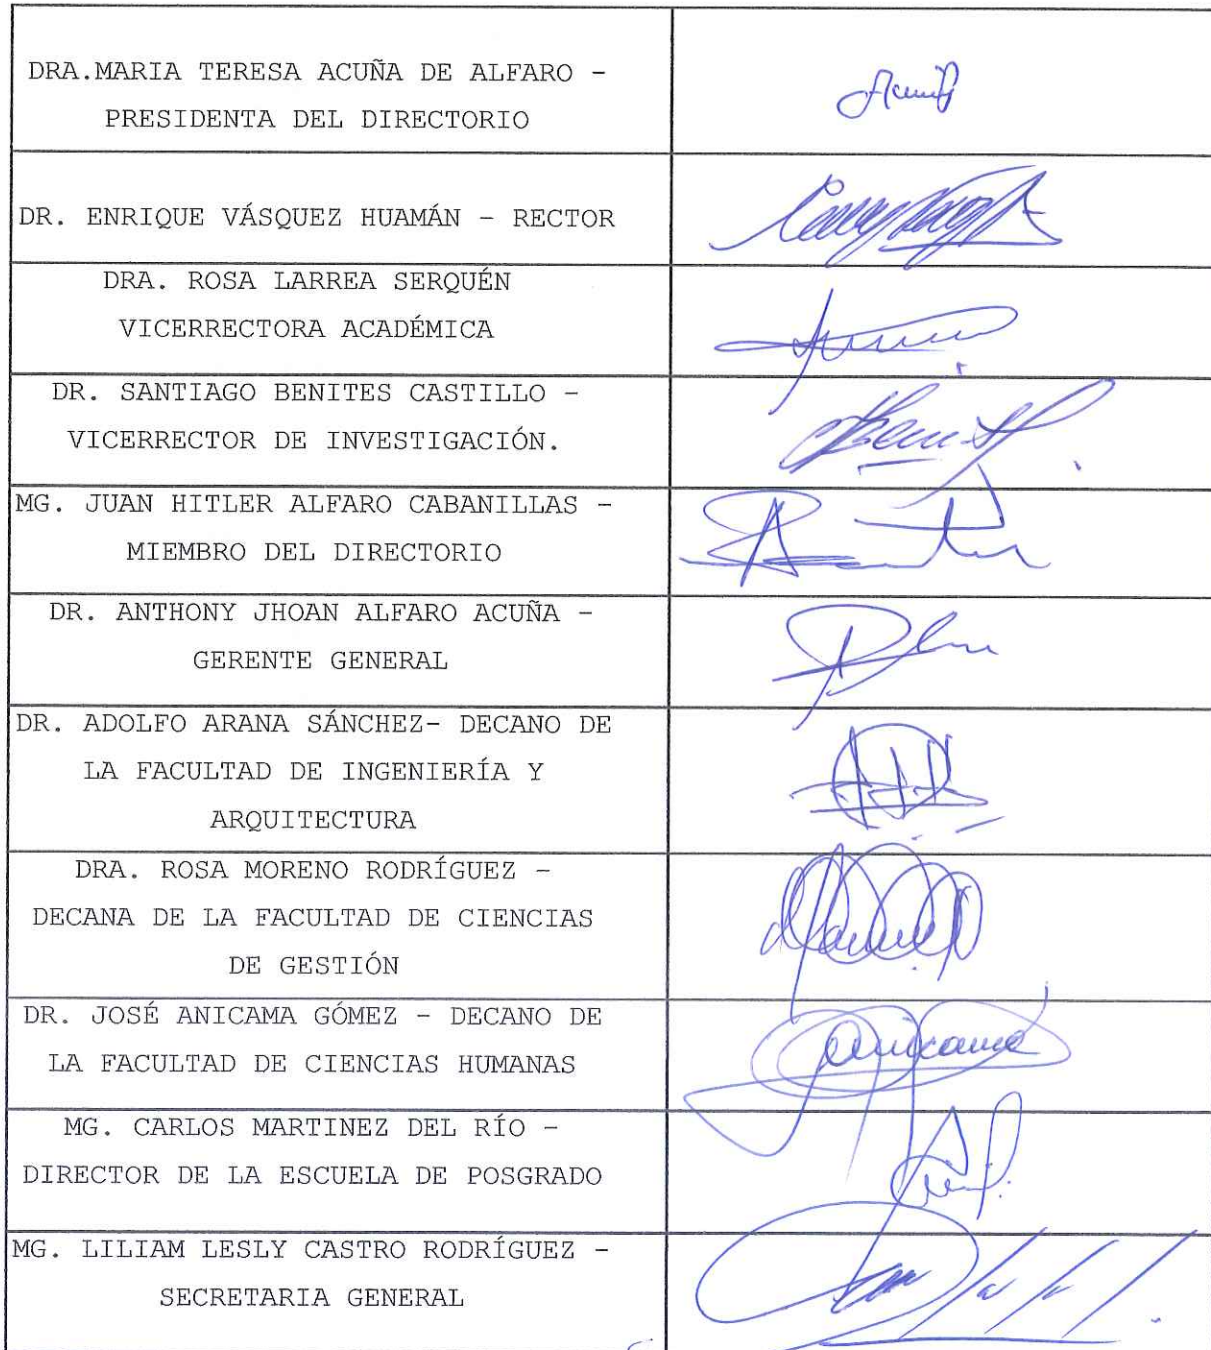 DRA.MARIA TERESA ACUÑA DE ALFARO -
PRESIDENTA DEL DIRECTORIO
DR. ENRIQUE VÁSQUEZ HUAMÁN - RECTOR
DRA. ROSA LARREA SERQUÉN
VICERRECTORA ACADÉMICA
DR. SANTIAGO BENITES CASTILLO -
VICERRECTOR DE INVESTIGACIÓN.
MG. JUAN HITLER ALFARO CABANILLAS -
MIEMBRO DEL DIRECTORIO
DR. ANTHONY JHOAN ALFARO ACUÑA -
GERENTE GENERAL
DR. ADOLFO ARANA SÁNCHEZ- DECANO DE
LA FACULTAD DE INGENIERÍA Y
ARQUITECTURA
DRA. ROSA MORENO RODRÍGUEZ -
DECANA DE LA FACULTAD DE CIENCIAS
DE GESTIÓN
DR. JOSÉ ANICAMA GÓMEZ - DECANO DE
LA FACULTAD DE CIENCIAS HUMANAS
MG. CARLOS MARTINEZ DEL RÍO -
DIRECTOR DE LA ESCUELA DE POSGRADO
MG. LILIAM LESLY CASTRO RODRÍGUEZ -
SECRETARIA GENERAL